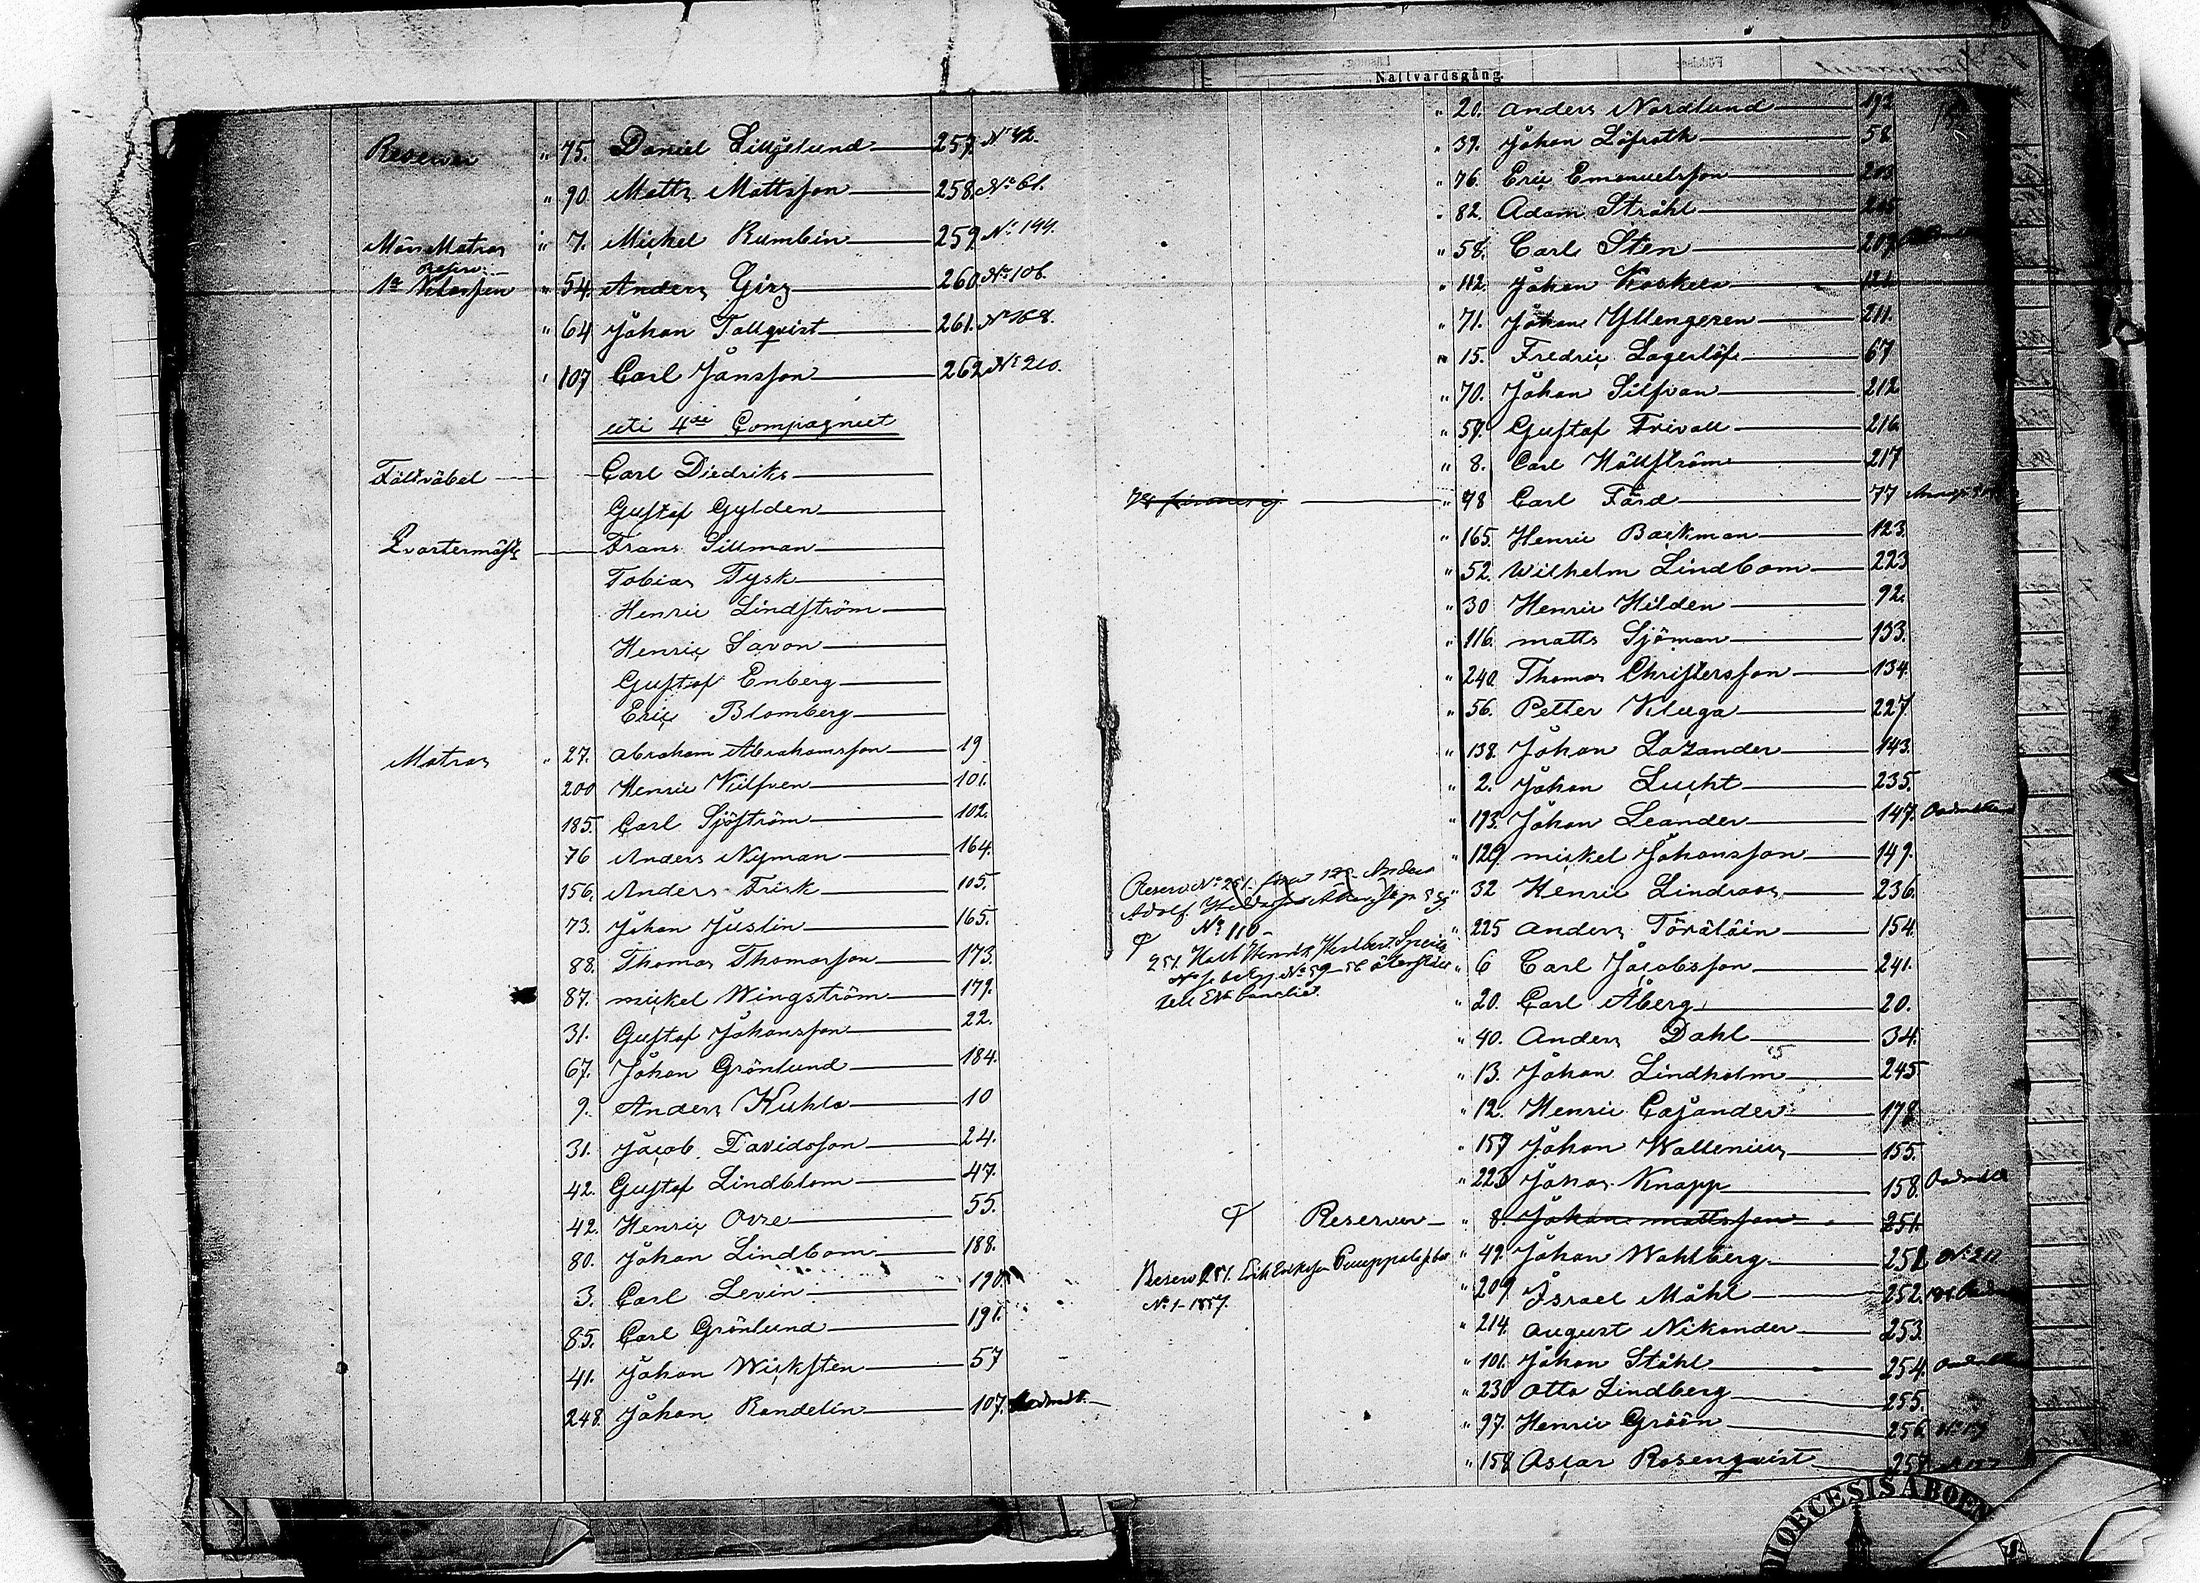 Reserver " 75. Daniel Liljelund 257 No 42.
" 90. Matts Mattsson 258 No 61.
" 7. Mickel Rumbin 259 No 199.
1a " 54 Anders Girs 260 No 106.
" 64 Johan Tallqvist 261. No 168.
" 107 Carl Jansson 262 No 210.
uti 4de Compagniet
Fältväbel Carl Diedriks
Gustaf Gylden
Qvartermäst Frans Sillman
Tobias Tysk
Henric Lindström
Henric Savon
Gustaf Enberg
Eric Blomberg
Matros " 27. Abraham Abrahamsson 19
200 Henric 101.
185. Carl Sjöström 102.
76 Anders Nyman 164.
156. Anders Frisk 105.
73. Johan Juslin 165.
88. Thomas Thomasson 173.
87. Mickel Wingström 179.
31. Gustaf Johansson 22.
67. Johan Grönlund 184.
9. Anders Kuhla 10
31. Jacob Davidsson 24.
42. Gustaf Lindblom 47.
42. Henric Orre 55.
80. Johan Lindbom 188.
3. Carl Levin 190.
85. Carl Grönlund 191.
41. Johan Wicksten 57
248. Johan Randelin 107.
Nattvardsgång.
" 20. Anders Nordlund 192
" 39. Johan Löfroth 58
" 76. Eric Emanuelsson
" 82. Adam Stråhl
" 58. Carl Sten 207
" 112. Johan Koskela 121
" 71. Johan Yllengeren 211.
" 15. Fredric Lagerlöf 67
" 70. Johan Silfvan 212
" 59. Gustaf Trivall 216
" 8. Carl Hällström 217
" 98 Carl Färd 77
" 165. Henric Backman 123.
" 52. Wilhelm Lindbom 223
" 30 Henric Hilden 92.
" 116. Matts Sjöman 133.
" 240. Thomas Christersson 134.
" 56. Petter Kluga 227.
" 138. Johan Lazander 143.
" 2. Johan Lucht 235.
" 193. Johan Leander 147.
" 129. Mickel Johansson 149.
" 32 Henric Lindroos 236.
" 225 Anders Töräläin 154.
" 6 Carl Jacobsson 241.
" 20. Carl Åberg 20.
" 40. Anders Dahl 34.
" 13. Johan Lindholm 245
" 12. Henric Cajander 178
" 157 Johan Wallenius 155.
" 223 Johan Knapp 158.
Reserver " 8. Johan Mattsson 251.
" 49. Johan Wahlberg 251 No 211
" 209 Israel Måhl 252.
" 214 August Nikander 253.
" 101. Johan Ståhl 254.
" 230 Otto Lindberg 255.
" 97. Henric Gröön 256.
" 158 Oscar Rosenqvist
Reserv No 251.
Adolf
No 110
Reserv 251.
No 1-1857.
DIOECESIS ABOEN